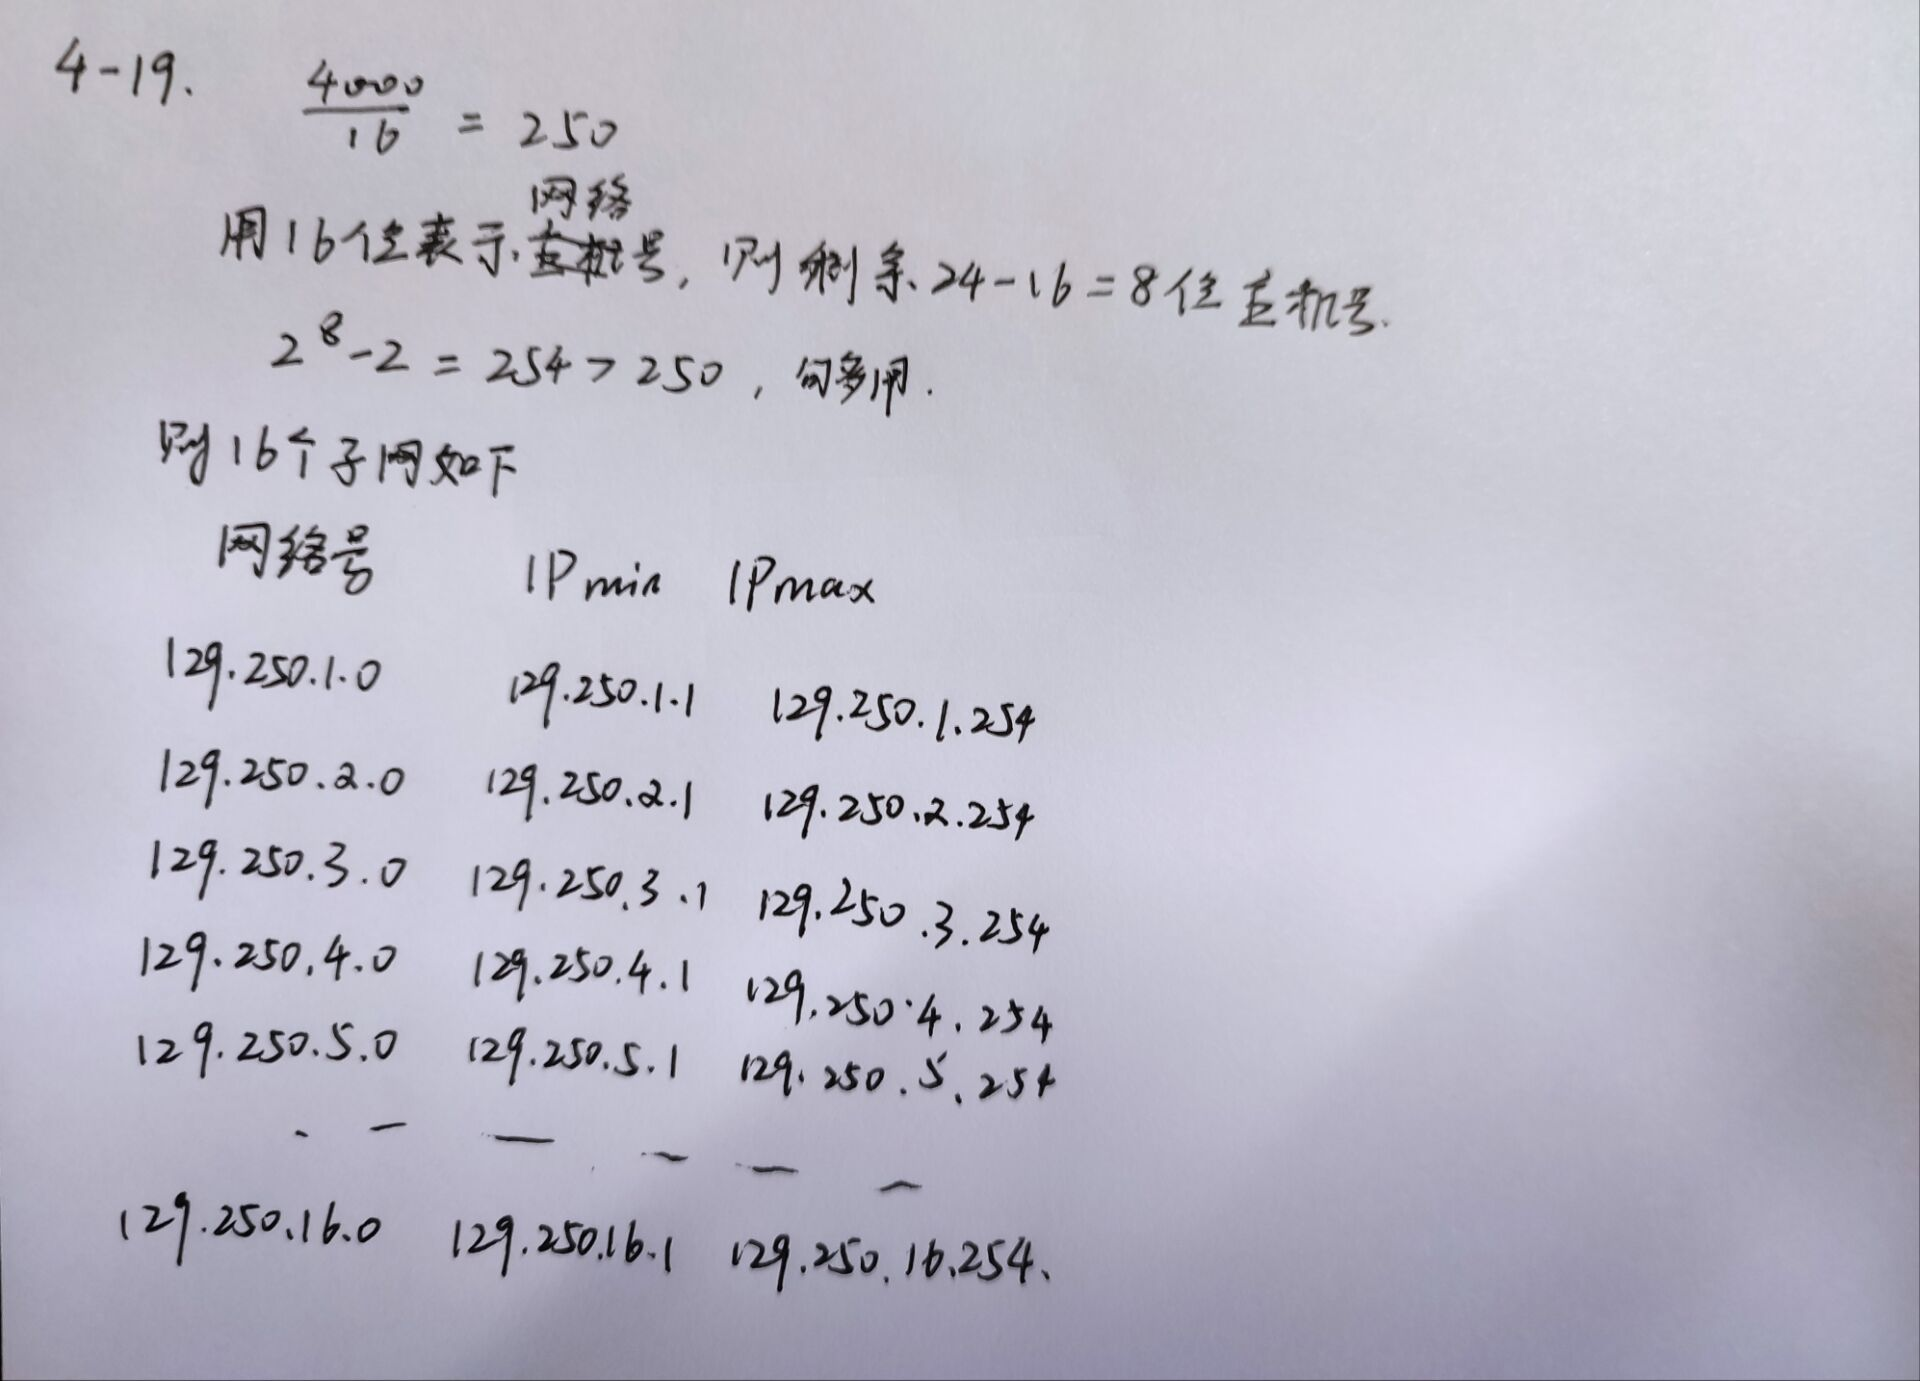 4-19. 4000/16 = 250
用16位表示网络号, 则剩余24-16=8位主机号.
2^8-2=254>250, 够用.
则16个子网如下
网络号 IPmin IPmax
129.250.1.0 129.250.1.1 129.250.1.254
129.250.2.0 129.250.2.1 129.250.2.254
129.250.3.0 129.250.3.1 129.250.3.254
129.250.4.0 129.250.4.1 129.250.4.254
129.250.5.0 129.250.5.1 129.250.5.254
129.250.16.0 129.250.16.1 129.250.16.254.